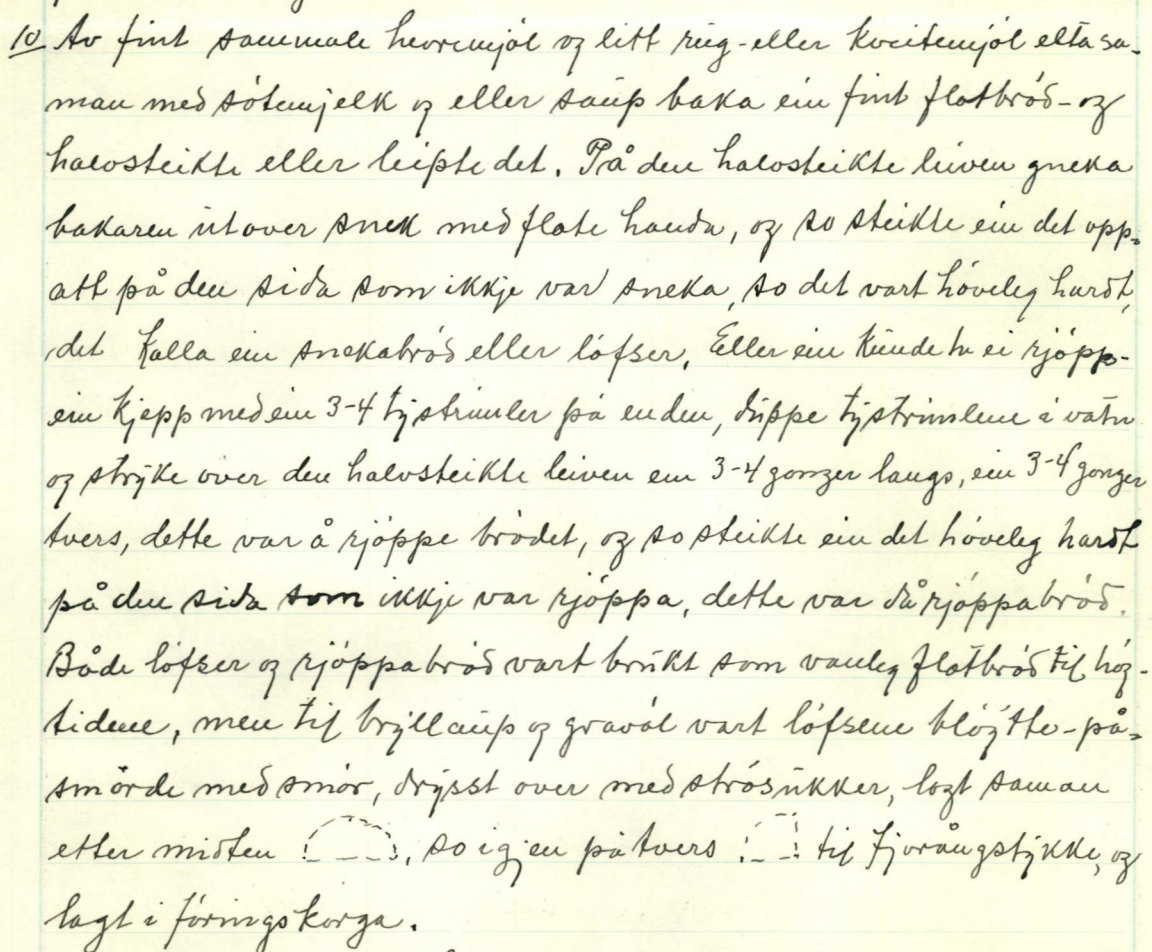 10 Av fint sammale havremjøl og litt rug- eller kveitemjøl elta sa-
man med søtemjelk og eller saup baka ein fint flatbrød- og
halvsteikte eller leipte det. På den halvsteikte leiven gneka
bakaren utover snek med flate handa, og so steikte ein det opp-
att på den sida som ikkje var sneka, so det vart høveleg hardt,
det kalla ein snekabrød eller lófser. Eller ein kunde ha ei rjópp-
ein kjepp med ein 3-4 tystrimler på enden, duppe tystrimlene i vatn
og stryke over den halvsteikte leiven ein 3-4 gonger langs, ein 3-4 gonger
tvers, dette var å rjóppe brødet, og so steikte ein det høveleg hardt
på den sida som ikkje var rjóppa, dette var då rjóppabrød.
Både lófser og rjóppabrød vart brukt som vanleg flatbrød til høg-
tidene, men til bryllaup og gravøl vart lófsene bløytte - på-
smørde med smør, drysst over med strøsukker, lagt saman
etter midten , so igjen på tvers til fjorångstykke, og
lagt i føringskorga.